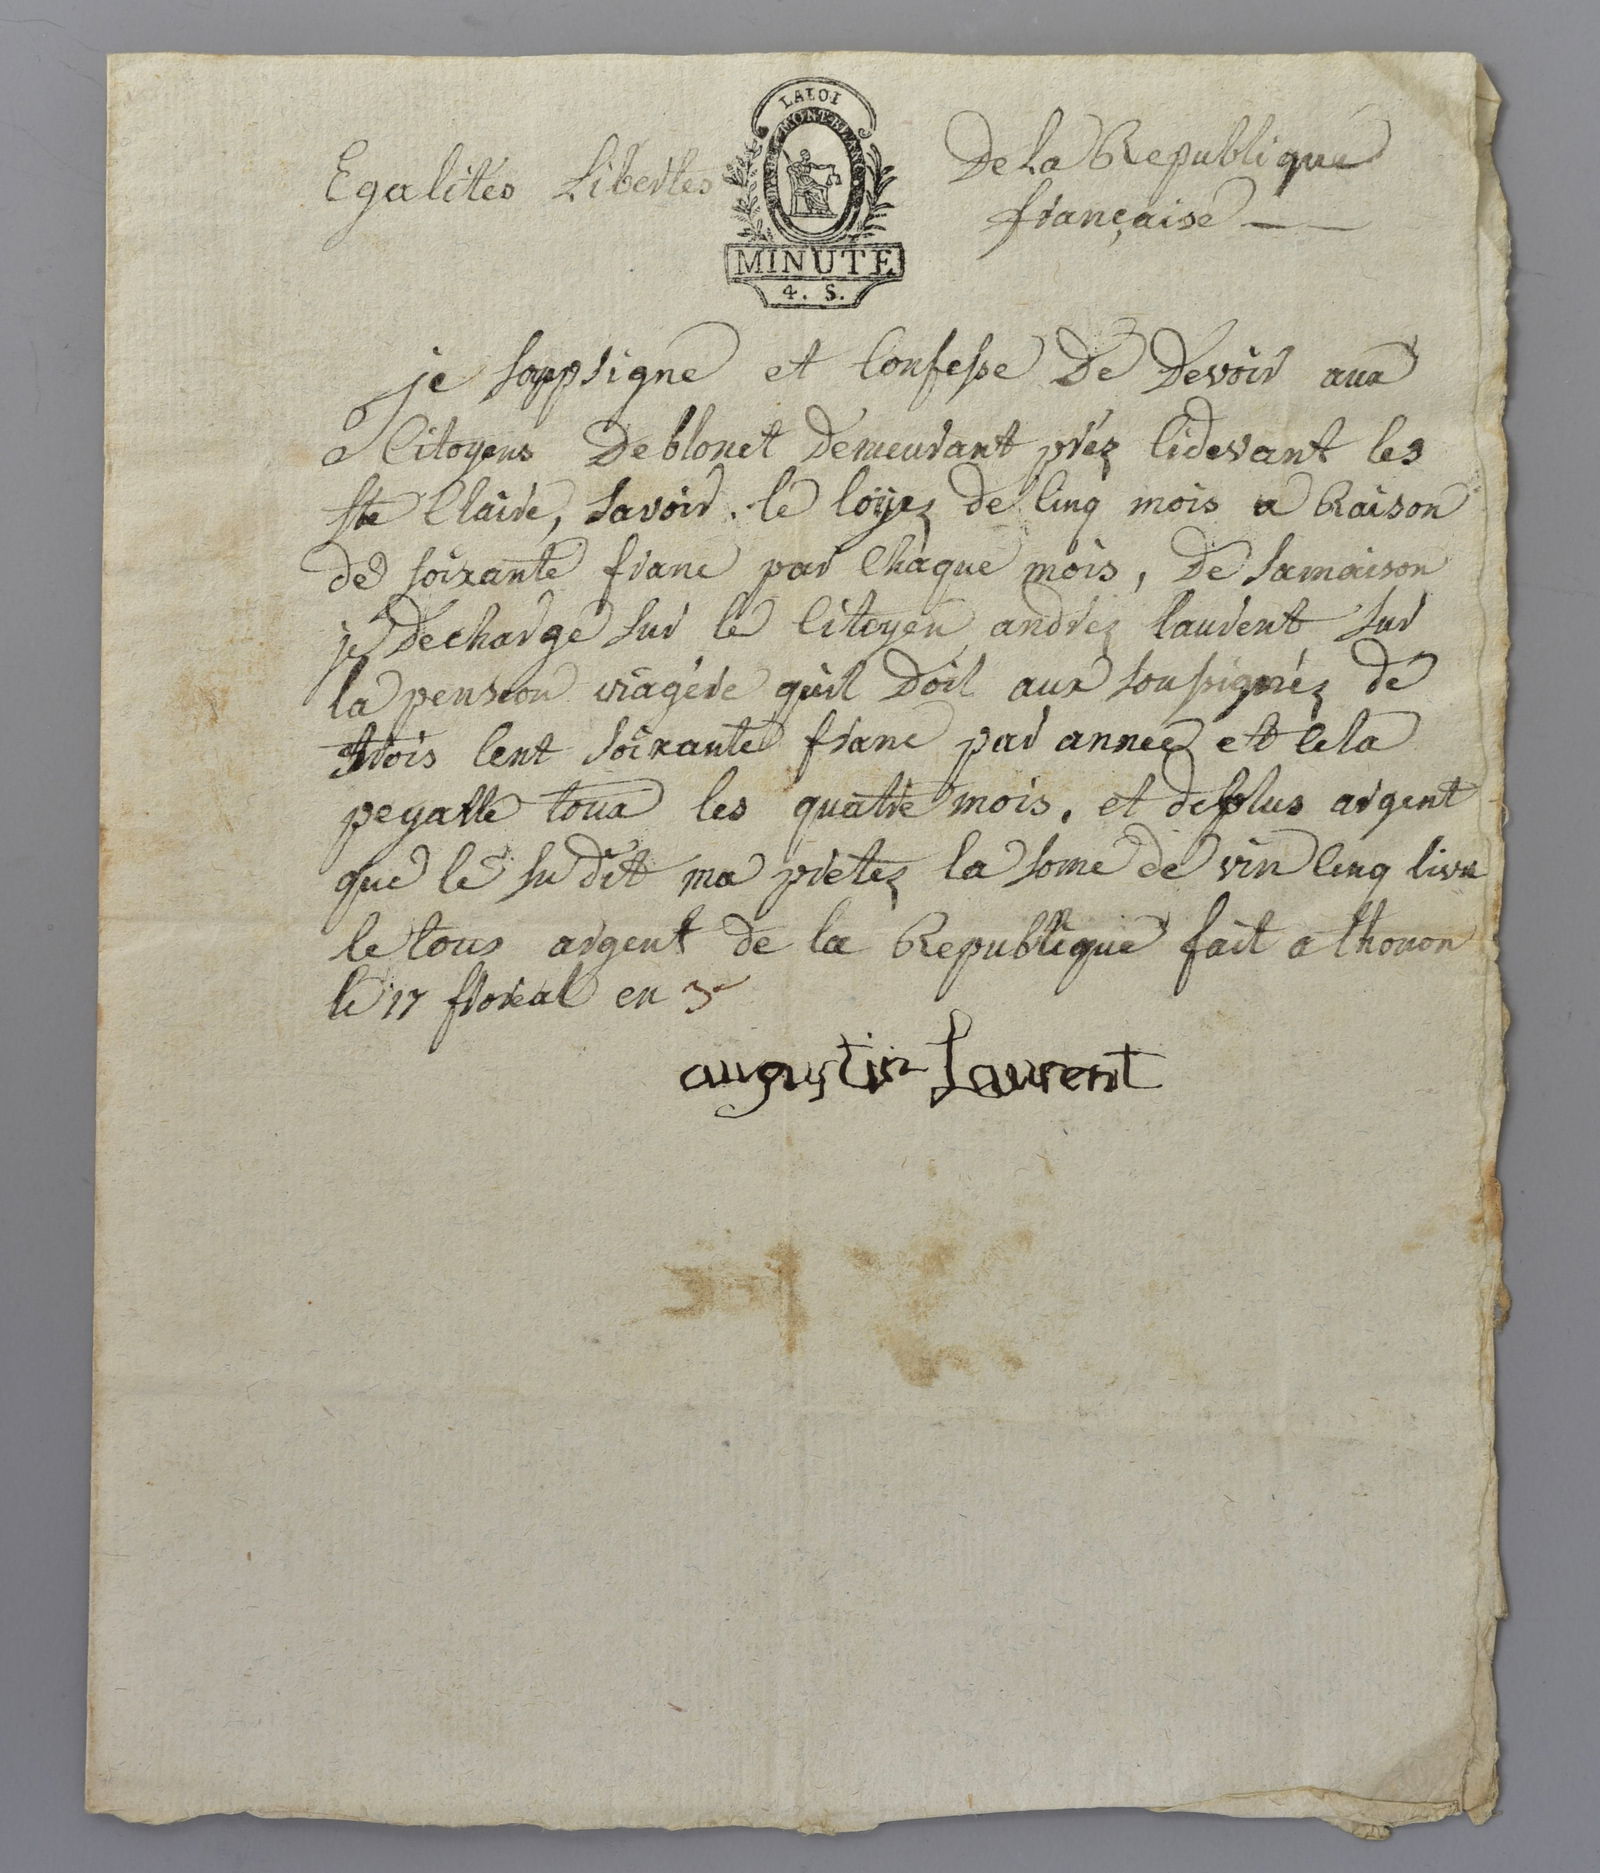 LA LOI
DEP. DU MONT-BLANC
MINUTE
4. S.
Egalités Libertes
De la Republique
française
je soupsigne et Confesse De Devoir aux
Citoyens Deblonet demeurant préz Cidevant les
Ste Claire, savoir. le loÿez de Cinq mois a Raison
de soixante franc par Chaque mois, De samaison
je decharge sur le Citoyen andrez laurent sur
la pension viagére quil Doit aux sousignéz de
trois Cent soixante franc par annee et Cela
peyable toux les quatre mois. et deplus argent
que le su dit ma pretez la some de vin Cinq livre
le tous argent de la Republique fait a thonon
le 17 floreal en 3e
augustin Laurent